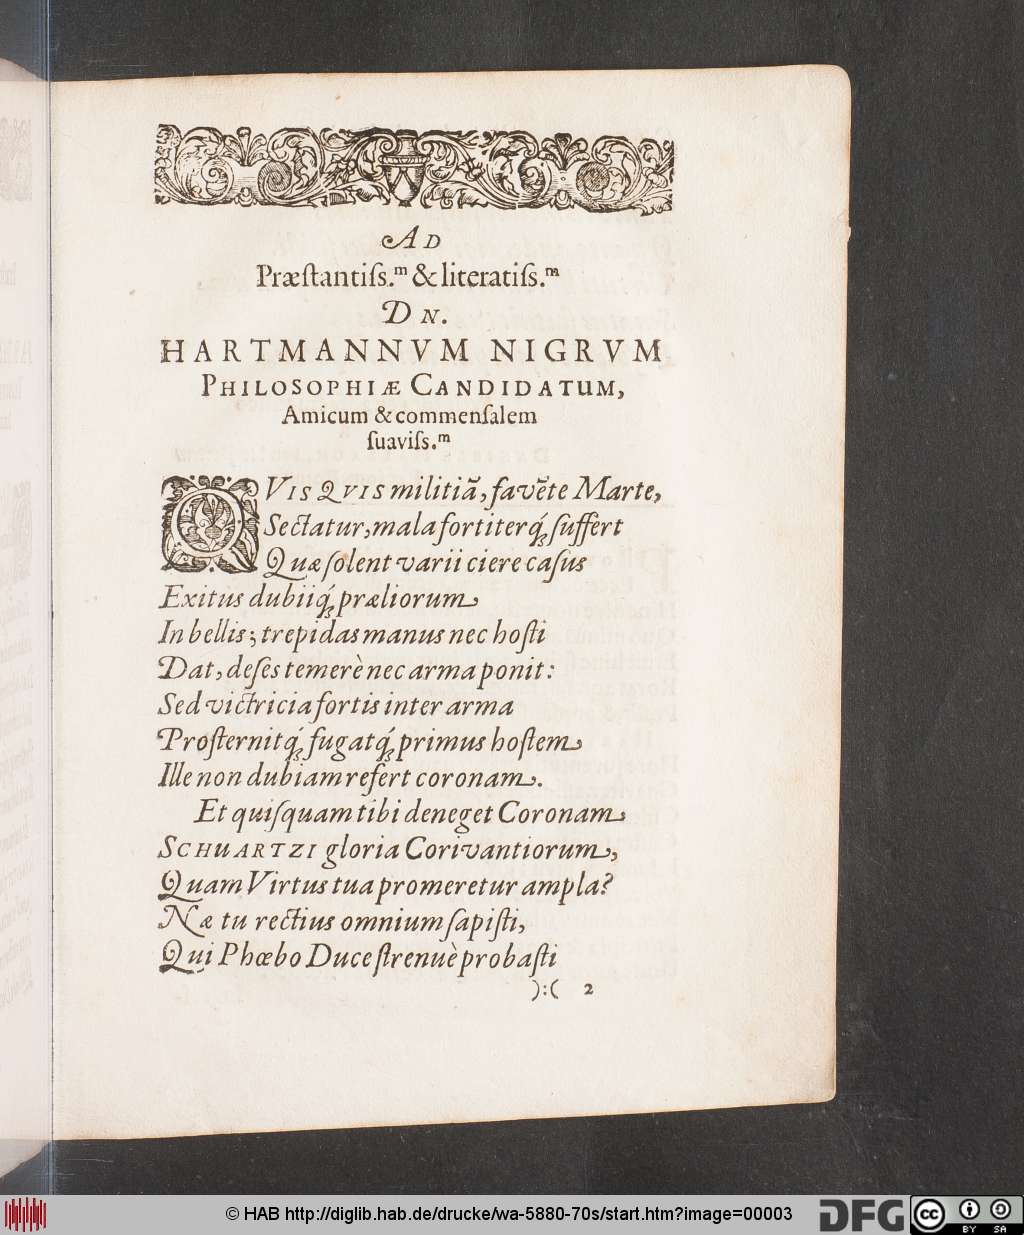 AD
Præſtantiſs.ᵐ & literatiſs.ᵐ
DN.
HARTMANNVM NIGRVM
PHILOSOPHIÆ CANDIDATUM,
Amicum & commenſalem
ſuaviſs.ᵐ
QVISQVIS militiã, favẽte Marte,
Sectatur, mala fortiterq́; ſuffert
Quæ ſolent varii ciere caſus
Exitus dubiiq́; præliorum
In bellis; trepidas manus nec hoſti
Dat, deſes temerè nec arma ponit:
Sed victricia fortis inter arma
Proſternitq́; fugatq́; primus hoſtem
Ille non dubiam refert coronam.
Et quiſquam tibi deneget Coronam
SCHUARTZI gloria Corivantiorum,
Quam Virtus tua promeretur ampla?
Næ tu rectius omnium ſapiſti,
Qui Phœbo Duce ſtrenuè probaſti
):( 2
© HAB http://diglib.hab.de/drucke/wa-5880-70s/start.htm?image=00003
DFG
cc
BY SA